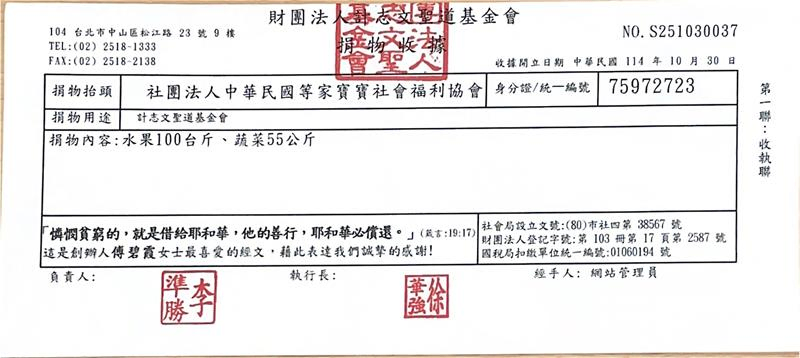 財團法人計志文聖道基金會
捐物收據
104 台北市中山區松江路 23 號 9 樓
TEL:(02) 2518-1333
FAX:(02) 2518-2138
NO. S251030037
收據開立日期 中華民國 114 年 10 月 30 日
捐物抬頭 社團法人中華民國等家寶寶社會福利協會 身分證/統一編號 75972723
捐物用途 計志文聖道基金會
捐物內容:水果100台斤、蔬菜55公斤
第一聯：收執聯
「憐憫貧窮的，就是借給耶和華，他的善行，耶和華必償還。」(箴言:19:17)
這是創辦人傅碧霞女士最喜愛的經文，藉此表達我們誠摯的感謝!
社會局設立文號:(80)市社四第 38567 號
財團法人登記字號:第 103 冊第 17 頁第 2587 號
國稅局扣繳單位統一編號:01060194 號
負責人:
李準勝
執行長:
徐華強
經手人: 網站管理員